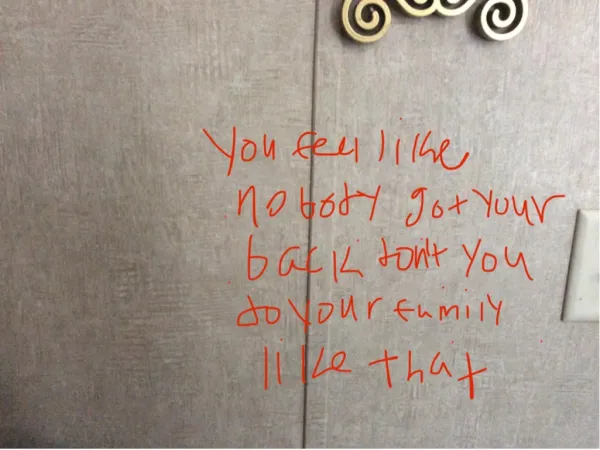 You feel like
nobody got your
back don't you
do your family
like that